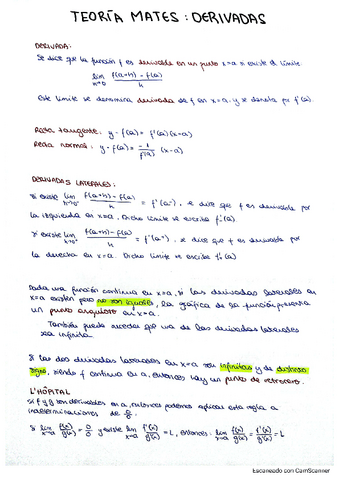 TEORÍA MATES: DERIVADAS
DERIVADA:
Se dice que la función f es derivable en un punto x=a si existe el límite
lim h→0 f(a+h) - f(a) / h
Este límite se denomina derivada de f en x=a y se denota por f'(a).
Recta tangente: y - f(a) = f'(a)(x-a)
Recta normal: y - f(a) = -1/f'(a) (x-a)
DERIVADAS LATERALES:
Si existe lim h→0⁻ f(a+h) - f(a) / h = f'(a⁻), se dice que f es derivable por
la izquierda en x=a. Dicho límite se escribe f'(a)
Si existe lim h→0⁺ f(a+h) - f(a) / h = f'(a⁺), se dice que f es derivable por
la derecha en x=a. Dicho límite se escribe f'(a)
Dada una función continua en x=a, si las derivadas laterales en
x=a existen pero no son iguales, la gráfica de la función presenta
un punto anguloso en x=a.
También puede suceder que una de las derivadas laterales
sea infinita.
Si las dos derivadas laterales en x=a son infinitas y de distinto
signo, siendo f continua en a, entonces hay un punto de retroceso.
L'HÔPITAL
Si f y g son derivables en a, entonces podemos aplicar esta regla a
indeterminaciones de 0/0.
Si lim f(x)/g(x) = 0/0 y existe lim f'(x)/g'(x) = L, entonces: lim f(x)/g(x) = f'(x)/g'(x) = L
Escaneado con CamScanner